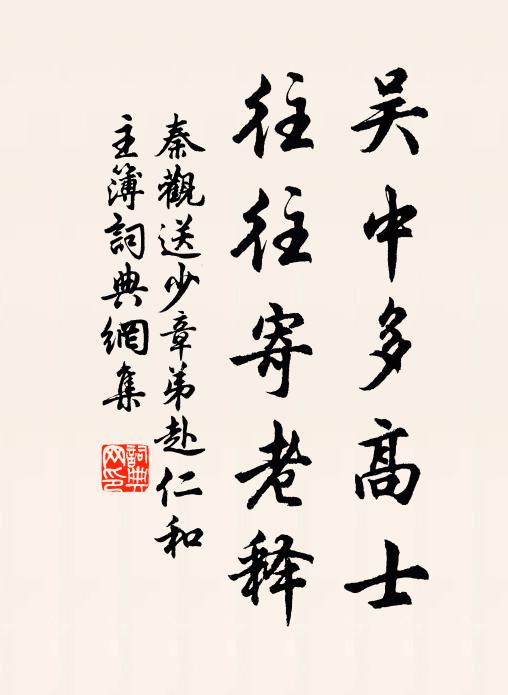 吴中多高士
往往寄老释
秦觀送少章弟赴仁和
主簿詞典網集
詞典
网印